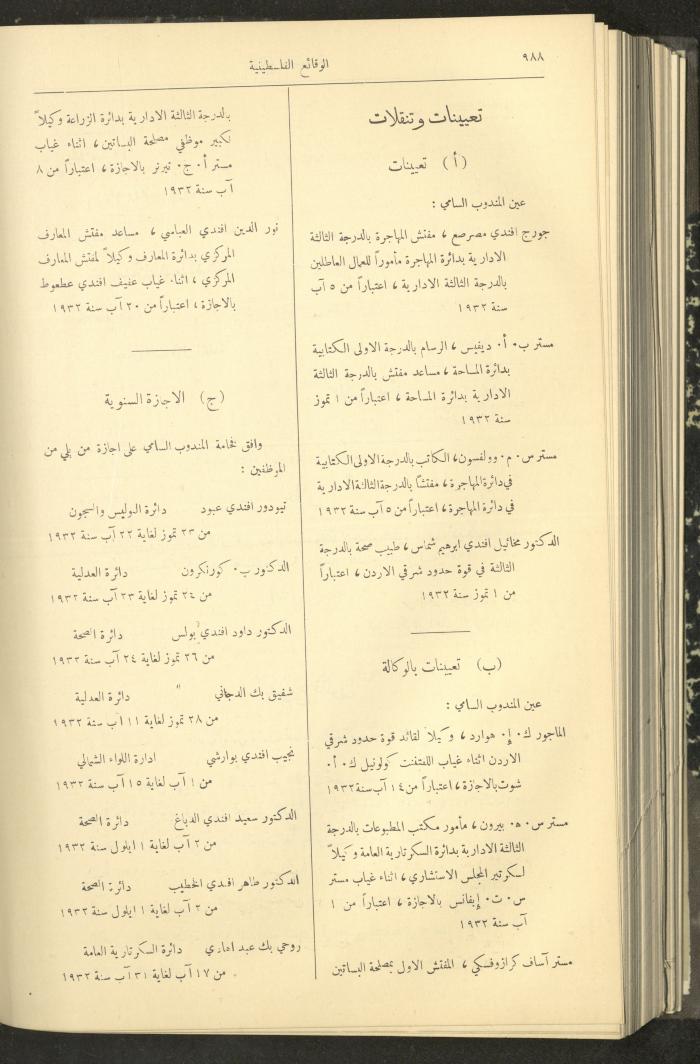 ٩٨٨
الوقائع الفلسطينية
تعيينات وتنقلات
(أ) تعيينات
عين المندوب السامي :
جورج افندي مصرصع ، مفتش المهاجرة بالدرجة الثالثة
الادارية بدائرة المهاجرة مأموراً للعمال العاطلين
بالدرجة الثالثة الادارية ، اعتباراً من ٥ آب
سنة ١٩٣٢
مستر ب٠ أ٠ ديفيس ، الرسام بالدرجة الاولى الكتابية
بدائرة المساحة ، مساعد مفتش بالدرجة الثالثة
الادارية بدائرة المساحة ، اعتباراً من ١ تموز
سنة ١٩٣٢
مستر س٠ م٠ وولفسون، الكاتب بالدرجة الاولى الكتابية
في دائرة المهاجرة ، مفتشاً بالدرجة الثالثة الادارية
في دائرة المهاجرة ، اعتباراً من ٥ آب سنة ١٩٣٢
الدكتور مخائيل افندي ابرهيم شماس ، طبيب صحة بالدرجة
الثالثة في قوة حدود شرقي الاردن ، اعتباراً
من ١ تموز سنة ١٩٣٢
(ب) تعيينات بالوكالة
عين المندوب السامي :
الماجور ك٠ إ٠ هوارد ، وكيلاً لقائد قوة حدود شرقي
الاردن اثناء غياب اللفتننت كولونيل ك٠ أ٠
شوت بالاجازة ، اعتباراً من ١٤ آب سنة ١٩٣٢
مستر س٠ ه٠ بيرون ، مأمور مكتب المطبوعات بالدرجة
الثالثة الادارية بدائرة السكرتارية العامة وكيلاً
لسكرتير المجلس الاستشاري ، اثناء غياب مستر
س٠ ت٠ إيفانس بالاجازة ، اعتباراً من ١
آب سنة ١٩٣٢
مستر آساف كرازوفسكي ، المفتش الاول بمصلحة البساتين
بالدرجة الثالثة الادارية بدائرة الزراعة وكيلاً
لكبير موظفي مصلحة البساتين ، اثناء غياب
مستر أ٠ ج٠ تيرنر بالاجازة ، اعتباراً من ٨
آب سنة ١٩٣٢
نور الدين افندي العباسي ، مساعد مفتش المعارف
المركزي بدائرة المعارف وكيلاً لمفتش المعارف
المركزي ، اثناء غياب عفيف افندي عطعوط
بالاجازة ، اعتباراً من ٢٠ آب سنة ١٩٣٢
(ج) الاجازة السنوية
وافق فخامة المندوب السامي على اجازة من يلي من
الموظفين :
تيودور افندي عبود دائرة البوليس والسجون
من ٢٣ تموز لغاية ٢٢ آب سنة ١٩٣٢
الدكتور ب٠ كورنكرون دائرة العدلية
من ٢٤ تموز لغاية ٢٣ آب سنة ١٩٣٢
الدكتور داود افندي بولس دائرة الصحة
من ٢٦ تموز لغاية ٢٤ آب سنة ١٩٣٢
شفيق بك الدجاني دائرة العدلية
من ٢٨ تموز لغاية ١١ آب سنة ١٩٣٢
نجيب افندي بوارشي ادارة اللواء الشمالي
من ١ آب لغاية ١٥ آب سنة ١٩٣٢
الدكتور سعيد افندي الدباغ دائرة الصحة
من ٢ آب لغاية ١ ايلول سنة ١٩٣٢
الدكتور طاهر افندي الخطيب دائرة الصحة
من ٢ آب لغاية ١ ايلول سنة ١٩٣٢
روحي بك عبد الهادي دائرة السكرتارية العامة
من ١٧ آب لغاية ٣١ آب سنة ١٩٣٢